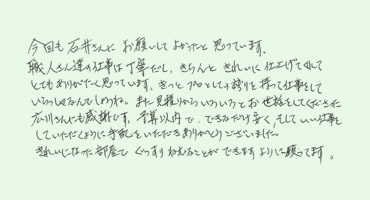 今回も石井さんにお願いしてよかったと思っています。
職人さん達の仕事は丁寧だし、きちんときれいに仕上げてくれて
とてもありがたいと思っています。きっとプロとしての誇りを持って仕事をして
いらっしゃるんでしょうね。また見積りからいろいろとお世話をしてくださった
広川さんにも感謝です。予算以内で、できるだけ安く、そしていい仕事を
していただくように手配をいただきありがとうございました。
きれいになった部屋でぐっすりねむることができますように願ってます。